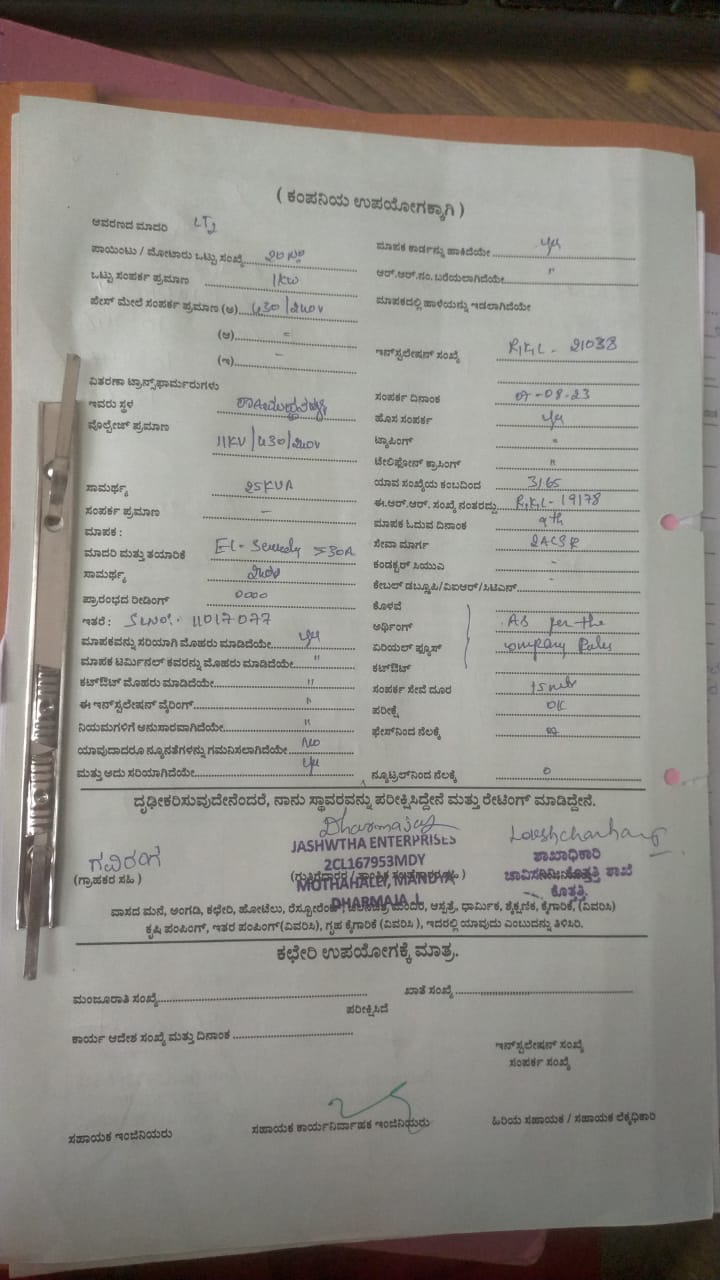 ( ಕಂಪನಿಯ ಉಪಯೋಗಕ್ಕಾಗಿ )
ಆವರಣದ ಮಾದರಿ LT2
ಪಾಯಿಂಟು / ಮೋಟಾರು ಒಟ್ಟು ಸಂಖ್ಯೆ
ಒಟ್ಟು ಸಂಪರ್ಕ ಪ್ರಮಾಣ 1KW
ಫೇಸ್ ಮೇಲೆ ಸಂಪರ್ಕ ಪ್ರಮಾಣ (ಅ) 430/240V
(ಆ) =
(ಇ) -
ವಿತರಣಾ ಟ್ರಾನ್ಸ್‌ಫಾರ್ಮರುಗಳು
ಇವರು ಸ್ಥಳ
ವೊಲ್ಟೇಜ್ ಪ್ರಮಾಣ
11KV/430/240V
ಸಾಮರ್ಥ್ಯ 25KVA
ಸಂಪರ್ಕ ಪ್ರಮಾಣ -
ಮಾಪಕ :
ಮಾದರಿ ಮತ್ತು ತಯಾರಿಕೆ 5-30A
ಸಾಮರ್ಥ್ಯ 240V
ಪ್ರಾರಂಭದ ರೀಡಿಂಗ್ 0000
ಇತರೆ : SLNO:- 11017077
ಮಾಪಕವನ್ನು ಸರಿಯಾಗಿ ಮೊಹರು ಮಾಡಿದೆಯೇ yes
ಮಾಪಕ ಟರ್ಮಿನಲ್ ಕವರನ್ನು ಮೊಹರು ಮಾಡಿದೆಯೇ "
ಕಟ್‌ಔಟ್ ಮೊಹರು ಮಾಡಿದೆಯೇ "
ಈ ಇನ್‌ಸ್ಟಲೇಷನ್ ವೈರಿಂಗ್ "
ನಿಯಮಗಳಿಗೆ ಅನುಸಾರವಾಗಿದೆಯೇ "
ಯಾವುದಾದರೂ ನ್ಯೂನತೆಗಳನ್ನು ಗಮನಿಸಲಾಗಿದೆಯೇ No
ಮತ್ತು ಅದು ಸರಿಯಾಗಿದೆಯೇ yes
ಮಾಪಕ ಕಾರ್ಡನ್ನು ಹಾಕಿದೆಯೇ yes
ಆರ್.ಆರ್.ನಂ. ಬರೆಯಲಾಗಿದೆಯೇ "
ಮಾಪಕದಲ್ಲಿ ಹಾಳೆಯನ್ನು ಇಡಲಾಗಿದೆಯೇ
ಇನ್‌ಸ್ಟಲೇಷನ್ ಸಂಖ್ಯೆ RKL - 21038
ಸಂಪರ್ಕ ದಿನಾಂಕ 07-08-23
ಹೊಸ ಸಂಪರ್ಕ yes
ಟ್ಯಾಪಿಂಗ್ "
ಟೆಲಿಫೋನ್ ಕ್ರಾಸಿಂಗ್ "
ಯಾವ ಸಂಖ್ಯೆಯ ಕಂಬದಿಂದ 3/65
ಈ.ಆರ್.ಆರ್. ಸಂಖ್ಯೆ ನಂತರದ್ದು RKL - 19178
ಮಾಪಕ ಓದುವ ದಿನಾಂಕ 9th
ಸೇವಾ ಮಾರ್ಗ 2ACSR
ಕಂಡಕ್ಟರ್ ಸಿಯುವಿ -
ಕೇಬಲ್ ಡಬ್ಲೂಪಿ/ವಿಐಆರ್/ಸಿಟಿಎಸ್ -
ಕೊಳವೆ
ಅರ್ಥಿಂಗ್ As per the
ಏರಿಯಲ್ ಫ್ಯೂಸ್ company Rules
ಕಟ್‌ಔಟ್
ಸಂಪರ್ಕ ಸೇವೆ ದೂರ 15mtr
ಪರೀಕ್ಷೆ OK
ಫೇಸ್‌ನಿಂದ ನೆಲಕ್ಕೆ ∞
ನ್ಯೂಟ್ರಲ್‌ನಿಂದ ನೆಲಕ್ಕೆ 0
ದೃಢೀಕರಿಸುವುದೇನೆಂದರೆ, ನಾನು ಸ್ಥಾವರವನ್ನು ಪರೀಕ್ಷಿಸಿದ್ದೇನೆ ಮತ್ತು ರೇಟಿಂಗ್ ಮಾಡಿದ್ದೇನೆ.
ಗವಿರಂಗ
(ಗ್ರಾಹಕರ ಸಹಿ)
JASHWTHA ENTERPRISES
2CL167953MDY
MOTHAHALLI, MANDYA
DHARMAJA .L
ಶಾಖಾಧಿಕಾರಿ
ಚಾವಿಸನಿನಿ ಕೊತ್ತತ್ತಿ ಶಾಖೆ
ಕೊತ್ತತ್ತಿ
ವಾಸದ ಮನೆ, ಅಂಗಡಿ, ಕಛೇರಿ, ಹೋಟೆಲು, ರೆಸ್ಟೋರೆಂಟ್, ಆಸ್ಪತ್ರೆ, ಧಾರ್ಮಿಕ, ಶೈಕ್ಷಣಿಕ, ಕೈಗಾರಿಕೆ, (ವಿವರಿಸಿ)
ಕೃಷಿ ಪಂಪಿಂಗ್, ಇತರ ಪಂಪಿಂಗ್(ವಿವರಿಸಿ), ಗೃಹ ಕೈಗಾರಿಕೆ (ವಿವರಿಸಿ ), ಇದರಲ್ಲಿ ಯಾವುದು ಎಂಬುದನ್ನು ತಿಳಿಸಿರಿ.
ಕಛೇರಿ ಉಪಯೋಗಕ್ಕೆ ಮಾತ್ರ.
ಮಂಜೂರಾತಿ ಸಂಖ್ಯೆ ಖಾತೆ ಸಂಖ್ಯೆ
ಪರೀಕ್ಷಿಸಿದೆ
ಕಾರ್ಯ ಆದೇಶ ಸಂಖ್ಯೆ ಮತ್ತು ದಿನಾಂಕ
ಇನ್‌ಸ್ಟಲೇಷನ್ ಸಂಖ್ಯೆ
ಸಂಪರ್ಕ ಸಂಖ್ಯೆ
ಸಹಾಯಕ ಇಂಜಿನಿಯರು ಸಹಾಯಕ ಕಾರ್ಯನಿರ್ವಾಹಕ ಇಂಜಿನಿಯರು ಹಿರಿಯ ಸಹಾಯಕ / ಸಹಾಯಕ ಲೆಕ್ಕಧಿಕಾರಿ